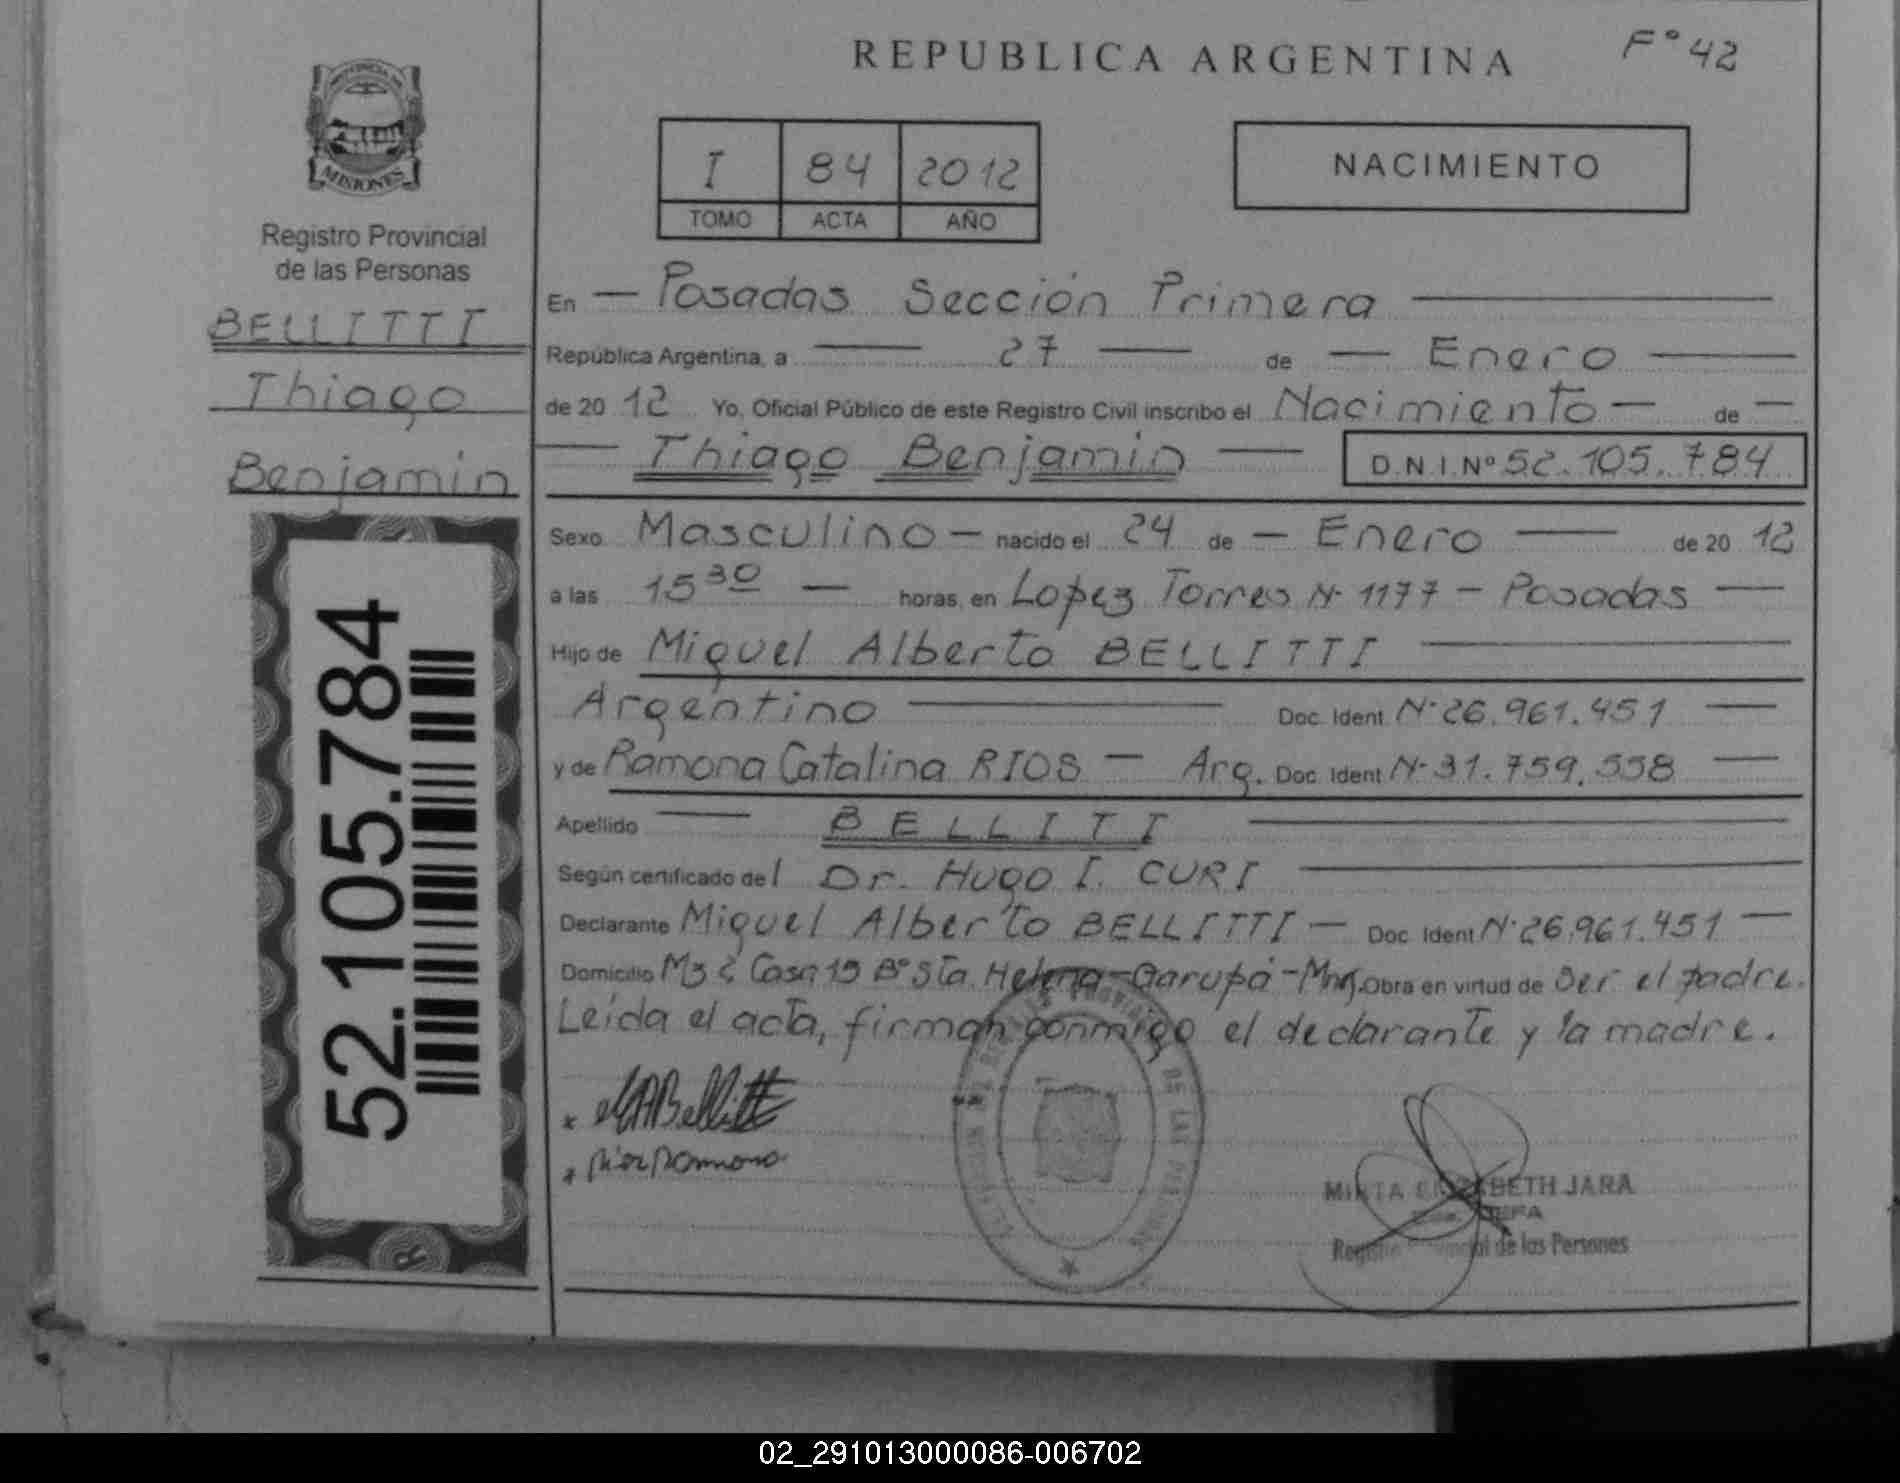 REPUBLICA ARGENTINA
F° 42
PROVINCIA DE
MISIONES
Registro Provincial
de las Personas
BELLITTI
Thiago
Benjamin
52.105.784
I 84 2012
TOMO ACTA AÑO
NACIMIENTO
En — Posadas Sección Primera —
República Argentina, a — 27 — de — Enero —
de 20 12 Yo, Oficial Público de este Registro Civil inscribo el Nacimiento — de —
— Thiago Benjamin — D.N.I.Nº 52.105.784
Sexo Masculino — nacido el 24 de — Enero — de 20 12
a las 15 30 — horas, en Lopez Torres N· 1177 - Posadas —
Hijo de Miguel Alberto BELLITTI —
Argentino — Doc. Ident. N· 26.961.451 —
y de Ramona Catalina RIOS — Arg. Doc. Ident. N· 31.759.558 —
Apellido — BELLITI —
Según certificado del Dr. Hugo I. CURI —
Declarante Miguel Alberto BELLITTI — Doc. Ident. N· 26.961.451 —
Domicilio Mz 2 Casa 19 B° Sta. Helena - Garupá - Mnes. Obra en virtud de Ser el padre.
Leída el acta, firman conmigo el declarante y la madre.
x Bellitti
x Rios Ramona
DE LAS PERSONAS
MIRTA ELIZABETH JARA
JEFA
Registro Provincial de las Personas
02_291013000086-006702